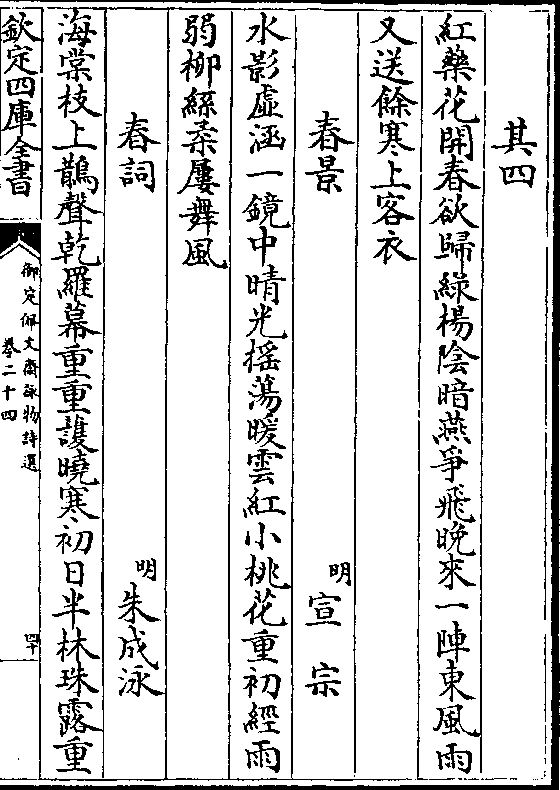 其四
紅藥花開春欲歸綠楊陰暗燕爭飛晚來一陣東風雨
又送餘寒上客衣
春景
明宣宗
水影虛涵一鏡中晴光搖蕩暖雲紅小桃花重初經雨
弱柳絲柔屢舞風
春詞
明朱成泳
海棠枝上鵲聲乾羅幕重重護曉寒初日半林珠露重
欽定四庫全書
御定佩文齋詠物詩選
卷二十四
四十